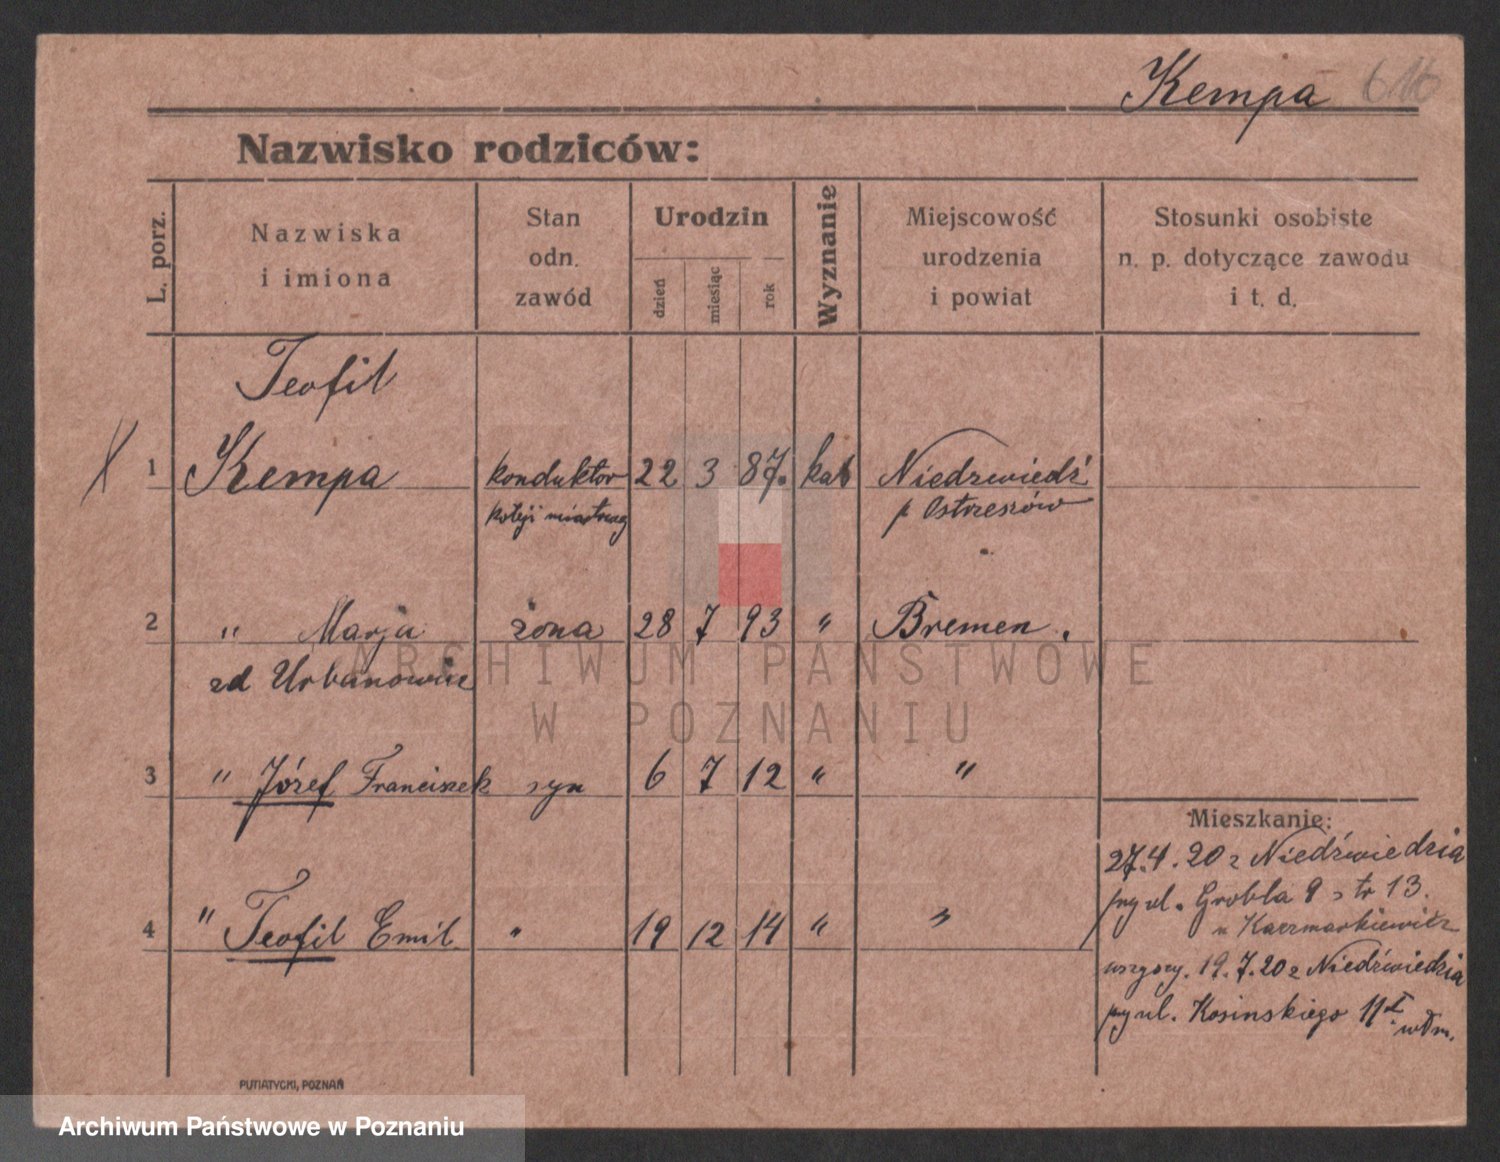 Kempa 616
Nazwisko rodziców:
L. porz.
Nazwiska
i imiona
Stan
odn.
zawód
Urodzin
dzień
miesiąc
rok
Wyznanie
Miejscowość
urodzenia
i powiat
Stosunki osobiste
n. p. dotyczące zawodu
i t. d.
Teofil
1 Kempa konduktor 22 3 87. kat Niedzwiedź
koleji p Ostrzeszów
2 " Marja żona 28 7 93 " Bremen.
zd Urbanowicz
3 " Józef Franciszek syn 6 7 12 " "
4 " Teofil Emil " 19 12 14 " "
Mieszkanie:
27.4.20 z Niedźwiedzia
przy ul. Grobla 9 tr 13.
u Kaczmarkiewicz
wszyscy. 19.7.20 z Niedźwiedzia
przy ul. Kosinskiego 11 I
PUTIATYCKI, POZNAŃ
ARCHIWUM PAŃSTWOWE
W POZNANIU
Archiwum Państwowe w Poznaniu